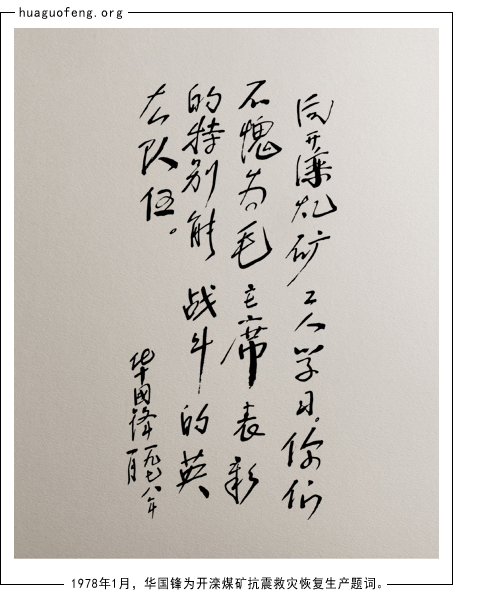 huaguofeng.org
向开滦煤矿工人学习。你们
不愧为毛主席表彰
的特别能战斗的英
雄队伍。
华国锋 一九七八年
一月
1978年1月，华国锋为开滦煤矿抗震救灾恢复生产题词。